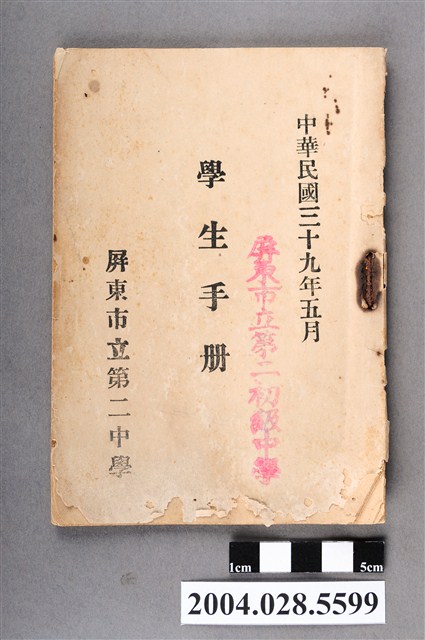 中華民國三十九年五月
屏東市立第二初級中學
學生手册
屏東市立第二中學
1cm 5cm
2004.028.5599